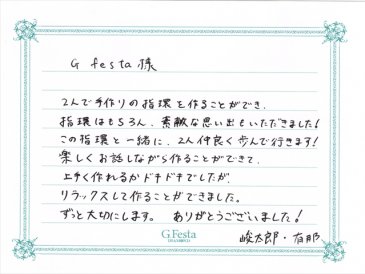 G festa 様
2人で手作りの指環を作ることができ、
指環はもちろん、素敵な思い出もいただきました!
この指環と一緒に、2人仲良く歩んで行きます!
楽しくお話しながら作ることができて、
上手く作れるかドキドキでしたが、
リラックスして作ることができました。
ずっと大切にします。 ありがとうございました!
G.Festa
峻太郎・有那